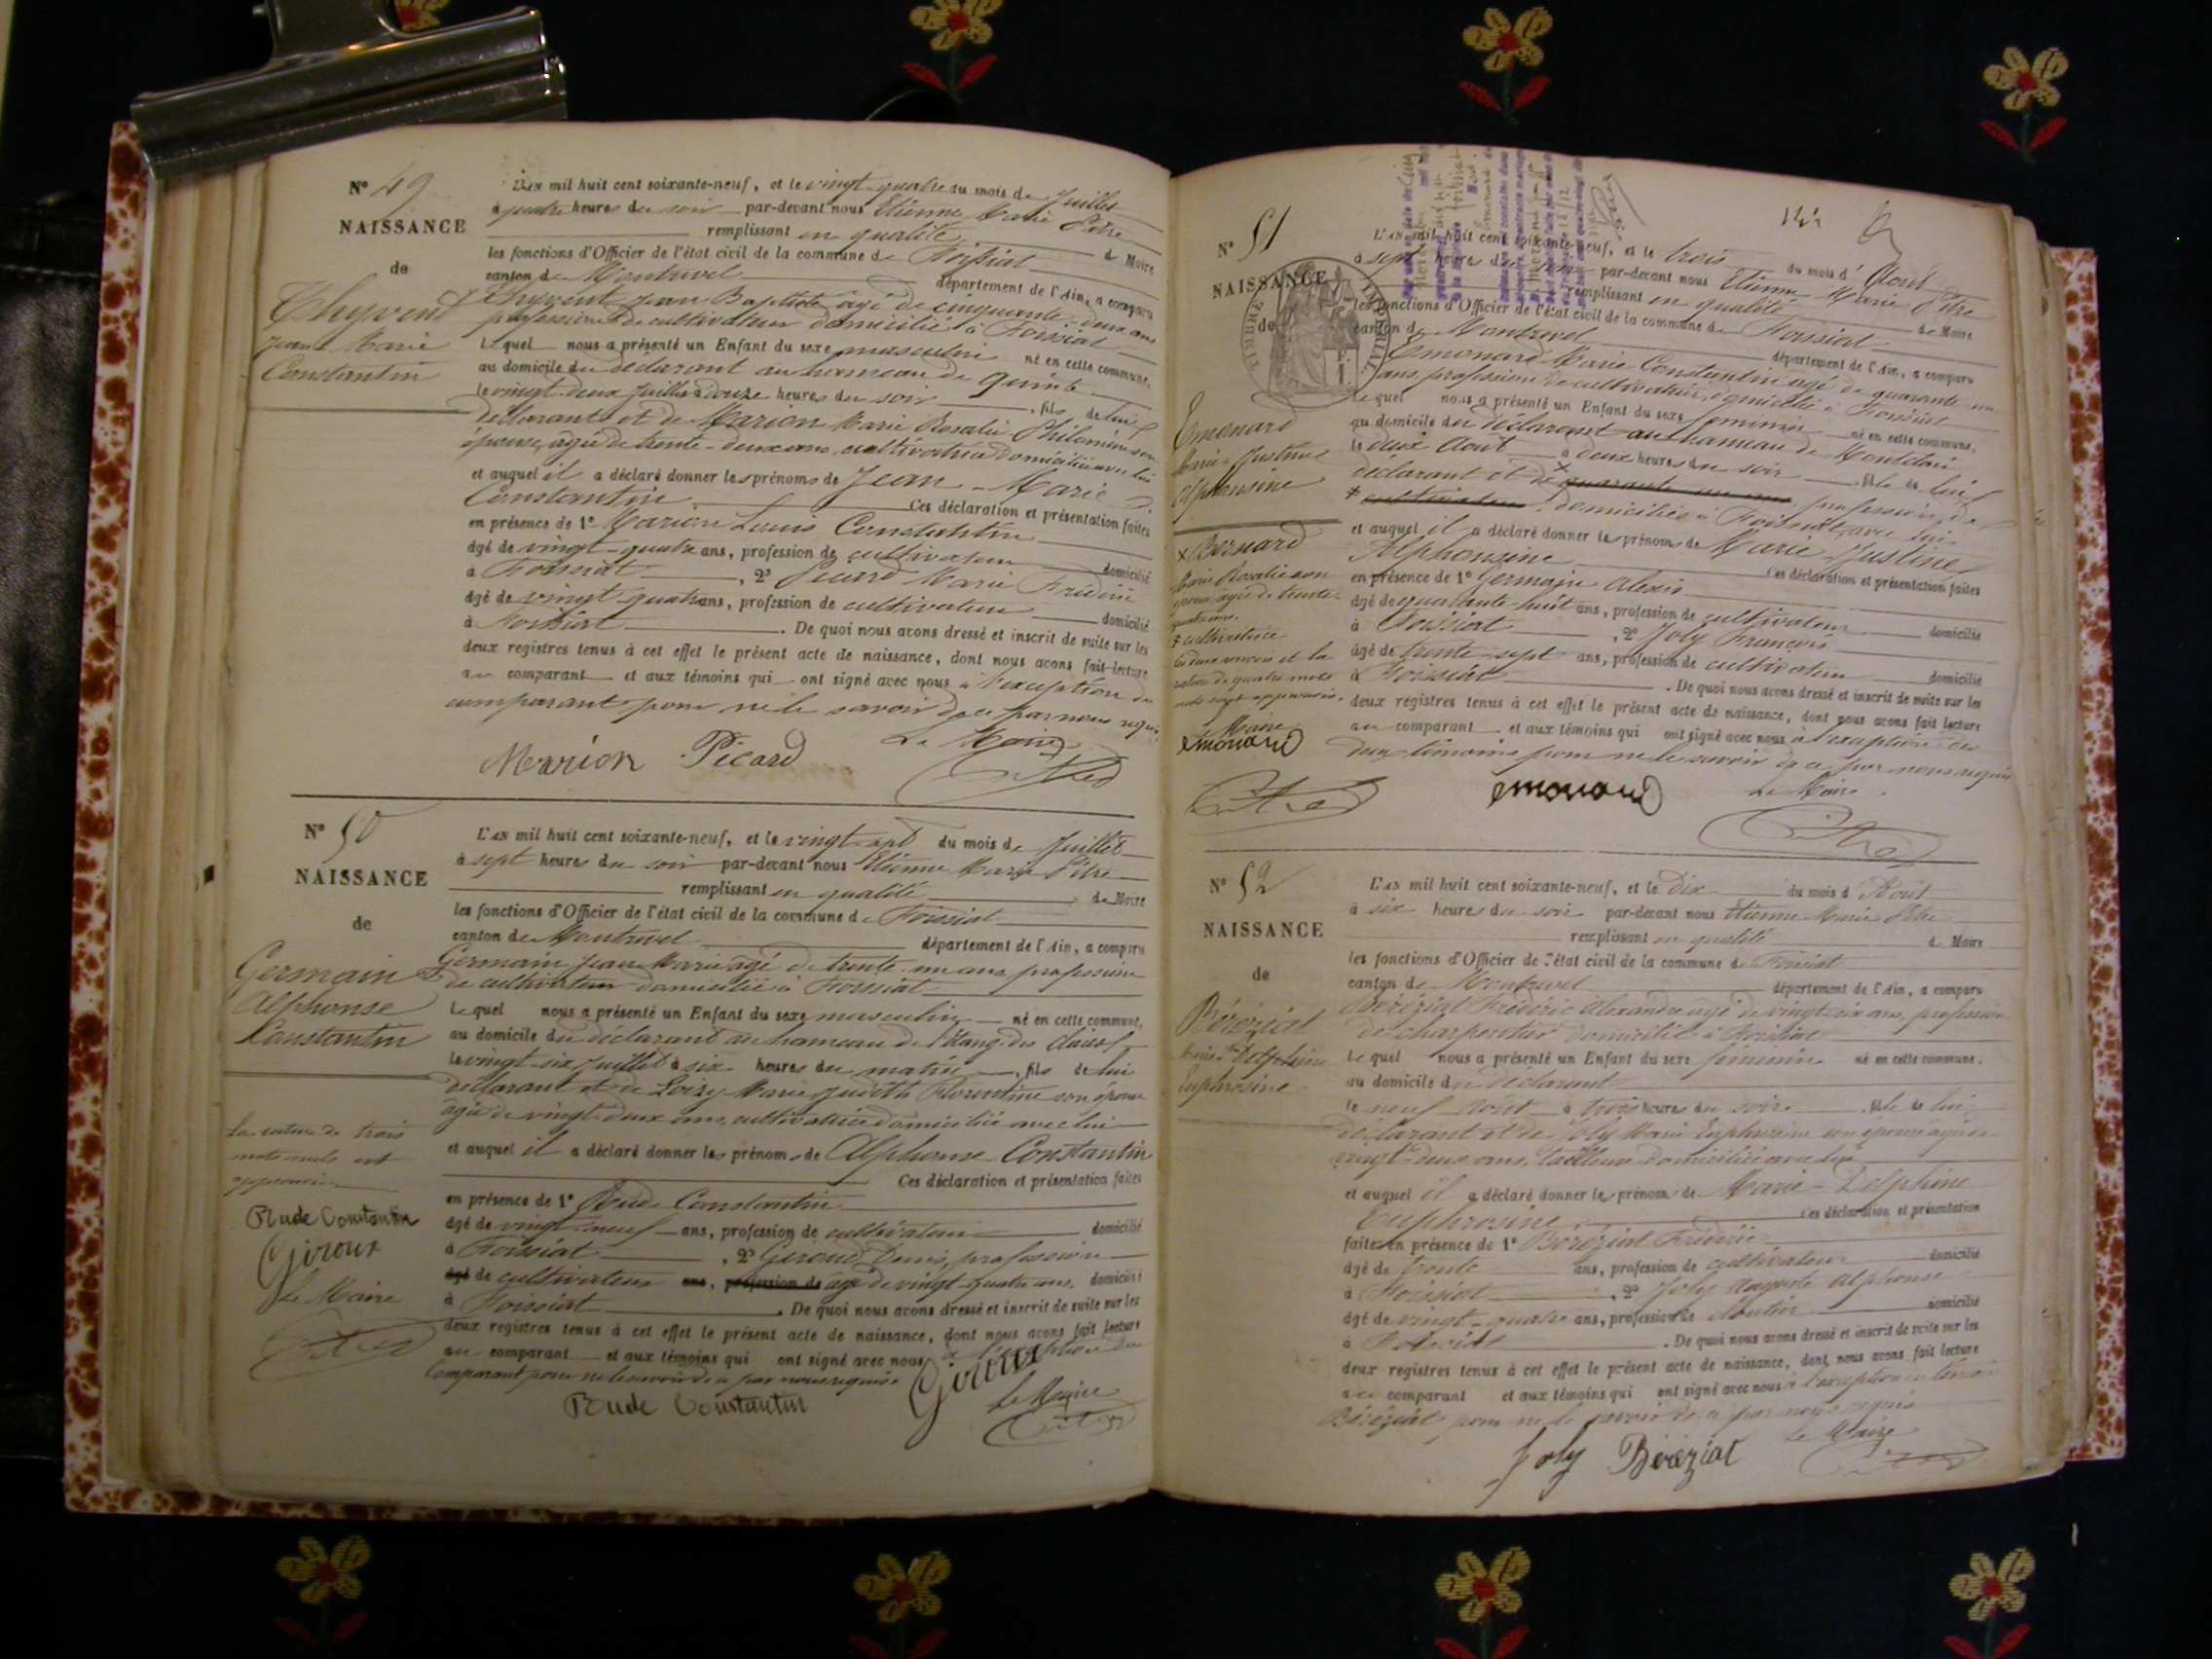 N° 49
NAISSANCE
de
Thyvent
Jean Marie
Constantin
L'AN mil huit cent soixante-neuf, et le vingt-quatre du mois de Juillet
à quatre heures du soir par-devant nous Etienne Marie Pitre
remplissant en qualité de Maire
les fonctions d'Officier de l'état civil de la commune de Foissiat
canton de Montrevel département de l'Ain, a comparu
Thyvent Jean Baptiste âgé de cinquante-deux ans
profession de cultivateur domicilié à Foissiat
Lequel nous a présenté un Enfant du sexe masculin né en cette commune,
au domicile du déclarant au hameau de
le vingt-deux Juillet à onze heures du soir, fils de lui
déclarant et de Marion Marie Rosalie Philomène son
épouse, âgée de trente-deux ans, cultivatrice domiciliée avec lui
et auquel il a déclaré donner les prénoms de Jean-Marie
Constantin Ces déclaration et présentation faites
en présence de 1° Marion Louis Constantin
âgé de vingt-quatre ans, profession de cultivateur domicilié
à Foissiat, 2° Picard Marie Frédéric
âgé de vingt-quatre ans, profession de cultivateur domicilié
à Foissiat. De quoi nous avons dressé et inscrit de suite sur les
deux registres tenus à cet effet le présent acte de naissance, dont nous avons fait lecture
au comparant et aux témoins qui ont signé avec nous à l'exception du
comparant pour ne le savoir de ce par nous requis
Le Maire
Marion Picard
Pitre
N° 50
NAISSANCE
de
Germain
Alphonse
Constantin
La rature de trois
mots nuls est
approuvée
Rude Constantin
Giroux
Le Maire
Pitre
L'AN mil huit cent soixante-neuf, et le vingt-sept du mois de Juillet
à sept heures du soir par-devant nous Etienne Marie Pitre
remplissant en qualité de Maire
les fonctions d'Officier de l'état civil de la commune de Foissiat
canton de Montrevel département de l'Ain, a comparu
Germain Jean Marie âgé de trente-un ans profession
de cultivateur domicilié à Foissiat
Lequel nous a présenté un Enfant du sexe masculin né en cette commune,
au domicile du déclarant au hameau de l'étang des
le vingt-six Juillet à six heures du matin, fils de lui
déclarant et de Loisy Marie Judith Florentine son épouse
âgée de vingt-deux ans, cultivatrice domiciliée avec lui
et auquel il a déclaré donner les prénoms de Alphonse Constantin
Ces déclaration et présentation faites
en présence de 1° Rude Constantin
âgé de vingt-neuf ans, profession de cultivateur domicilié
à Foissiat, 2° Giroux Denis, profession
âgé de cultivateur ans, profession de âgé de vingt-quatre ans, domicilié
à Foissiat. De quoi nous avons dressé et inscrit de suite sur les
deux registres tenus à cet effet le présent acte de naissance, dont nous avons fait lecture
au comparant et aux témoins qui ont signé avec nous à l'exception du
comparant pour ne le savoir de ce par nous requis
Giroux
Le Maire
Rude Constantin
Pitre
N° 51
NAISSANCE
de
TIMBRE IMPERIAL
Emonard
Marie Justine
Alphonsine
x Bernard
Marie Rosalie son
épouse, âgée de trente-
quatre ans.
‡ cultivatrice
Les deux renvois et la
rature de quatre mots
nuls sont approuvés.
Le Maire
emonard
Pitre
L'AN mil huit cent soixante-neuf, et le trois du mois d'Août
à sept heures du soir par-devant nous Etienne Marie Pitre
remplissant en qualité de Maire
les fonctions d'Officier de l'état civil de la commune de Foissiat
canton de Montrevel département de l'Ain, a comparu
Emonard Marie Constantin âgé de quarante-un
ans, profession de cultivateur, domicilié à Foissiat
Lequel nous a présenté un Enfant du sexe féminin né en cette commune,
au domicile du déclarant au hameau de
le deux Août à deux heures du soir, fille de lui
déclarant et de x quarante-un ans profession de
‡ cultivateur, domiciliée à Foissiat avec lui
et auquel il a déclaré donner les prénoms de Marie Justine
Alphonsine Ces déclaration et présentation faites
en présence de 1° Germain Alexis
âgé de quarante-huit ans, profession de cultivateur domicilié
à Foissiat, 2° Joly François
âgé de trente-sept ans, profession de cultivateur domicilié
à Foissiat. De quoi nous avons dressé et inscrit de suite sur les
deux registres tenus à cet effet le présent acte de naissance, dont nous avons fait lecture
au comparant et aux témoins qui ont signé avec nous à l'exception des
deux témoins pour ne le savoir de ce par nous requis
Le Maire
emonard
Pitre
N° 52
NAISSANCE
de
Béréziat
Marie Delphine
Euphrosine
L'AN mil huit cent soixante-neuf, et le Dix du mois d'Août
à six heures du soir par-devant nous Etienne Marie Pitre
remplissant en qualité de Maire
les fonctions d'Officier de l'état civil de la commune de Foissiat
canton de Montrevel département de l'Ain, a comparu
Béréziat Frédéric Alexandre âgé de vingt-six ans, profession
de charpentier domicilié à Foissiat
Lequel nous a présenté un Enfant du sexe féminin né en cette commune,
au domicile du déclarant
le neuf Août à trois heures du soir, fille de lui
déclarant et de Joly Marie Euphrosine son épouse âgée de
vingt-deux ans, tailleuse domiciliée avec lui
et auquel il a déclaré donner les prénoms de Marie-Delphine
Euphrosine Ces déclaration et présentation
faites en présence de 1° Béréziat Frédéric
âgé de trente ans, profession de cultivateur domicilié
à Foissiat, 2° Joly Auguste Alphonse
âgé de vingt-quatre ans, profession de domicilié
à Foissiat. De quoi nous avons dressé et inscrit de suite sur les
deux registres tenus à cet effet le présent acte de naissance, dont nous avons fait lecture
au comparant et aux témoins qui ont signé avec nous à l'exception du témoin
Béréziat pour ne le savoir de ce par nous requis
Le Maire
Joly Béréziat
Pitre